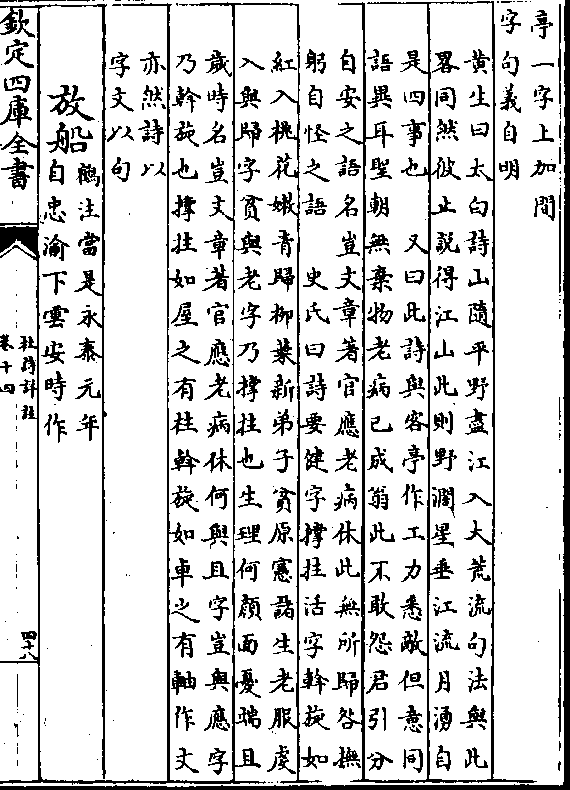 亭一字上加間
字句義自明
黄生曰太白詩山隨平野盡江入大荒流句法與此
畧同然彼止説得江山此則野濶星垂江流月湧自
是四事也　又曰此詩與客亭作工力悉敵但意同
語異耳聖朝無棄物老病已成翁此不敢怨君引分
自安之語名豈文章著官應老病休此無所歸咎撫
躬自怪之語　史氏曰詩要健字撑拄活字斡旋如
紅入桃花嫩青歸柳葉新弟子貧原憲諸生老服虔
入與歸字貧與老字乃撑拄也生理何顔面憂端且
歲時名豈文章著官應老病休何與且字豈與應字
乃斡旋也撑拄如屋之有柱斡旋如車之有軸作文
亦然詩以
字文以句
放船
鶴注當是永泰元年
自忠渝下雲安時作
欽定四庫全書
杜詩詳註
卷十四
四十八